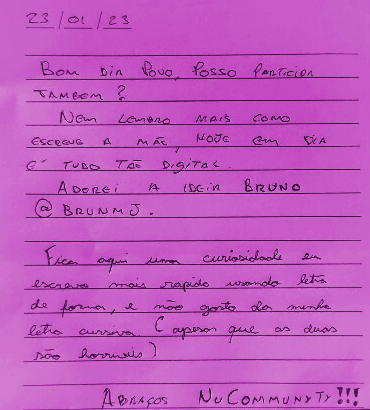 23/01/23
BOM DIA POVO, POSSO PARTICIPAR
TAMBEM?
NEM LEMBRO MAIS COMO
ESCREVE A MÃE, HOJE EM DIA
É TUDO TÃO DIGITAL.
ADOREI A IDEIA BRUNO
@BRUNMJ.
Fica aqui uma curiosidade eu
escrevo mais rapido usando letra
de forma, e não gosto da minha
letra cursiva (apesar que as duas
são horriveis)
ABRAÇOS NUCOMMUNYTY!!!